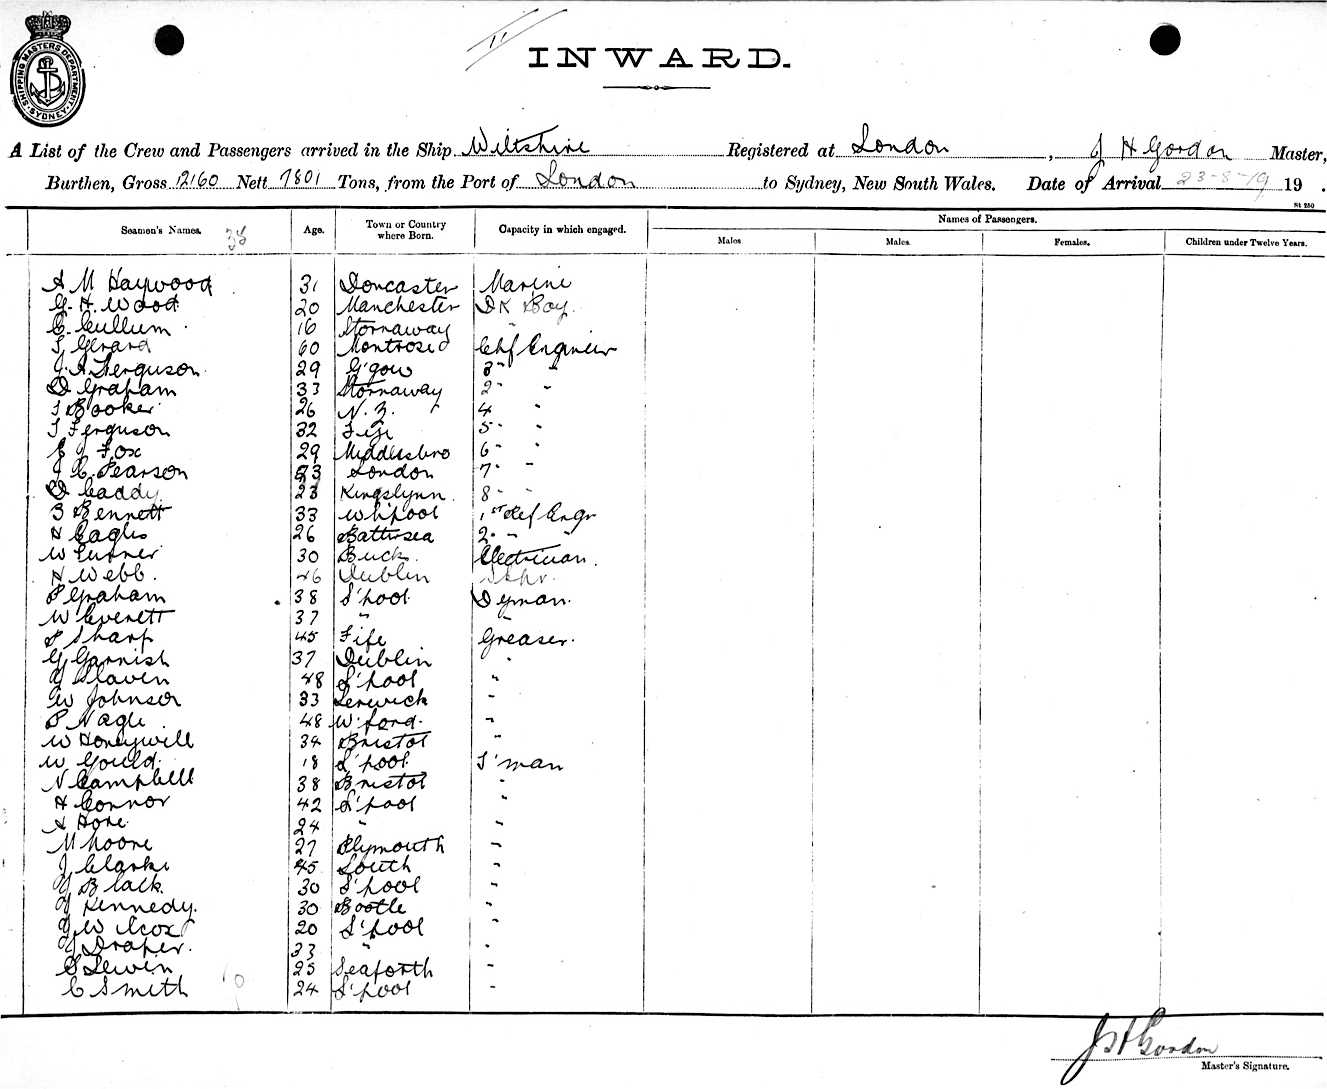 11
INWARD.
SHIPPING MASTERS DEPARTMENT SYDNEY
A List of the Crew and Passengers arrived in the Ship Wiltshire Registered at London, J H Gordon Master,
Burthen, Gross 12160 Nett 7801 Tons, from the Port of London to Sydney, New South Wales. Date of Arrival 23-8-19 19 .
St 250
Seamen's Names. Age. Town or Country where Born. Capacity in which engaged. Names of Passengers.
Males Males. Females. Children under Twelve Years.
A M Haywood 31 Doncaster Marine
G. H. Wood 20 Manchester DK Boy
C. Cullum 16 Stornaway "
T Gerard 60 Montrose Chf Engineer
J. A. Ferguson 29 G'gow 3" "
D Graham 33 Stornaway 2" "
T Booker 26 N.Z. 4 "
T Ferguson 32 Fife 5" "
E J Fox 29 Middlesbro 6" "
J C. Pearson 23 London 7" "
D Caddy 23 Kingslynn 8" "
B Bennett 33 W'hpool 1st Ref Engr
H Eagles 26 Battersea 2" "
W Turner 30 Buck Electrician.
H Webb. 46 Dublin
P Graham 38 L'pool D'yman.
W Everett 37 " "
P Sharp 45 Fife Greaser.
G Garnish 37 Dublin "
J Slaven 48 L'pool "
W Johnson 33 Lerwick "
P Nagle 48 W'ford. "
W Honeywill 34 Bristol "
W Gould 18 L'pool T'man
N Campbell 38 Bristol "
H Connor 42 L'pool "
A Hore 24 " "
M Moore 27 Plymouth "
J Clarke 45 South "
J Black 30 L'pool "
J Kennedy. 30 Bootle "
J W Cox 20 L'pool "
J Draper. 33 " "
S Lewin 25 Seaforth "
C Smith 24 L'pool "
J H Gordon
Master's Signature.